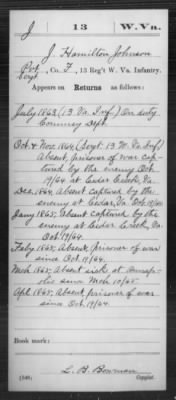 J 13 W. Va.
J. Hamilton Johnson
Pvt
Sergt, Co. F, 13 Reg't W. Va. Infantry.
Appears on Returns as follows:
July 1863 (13 Va. Inf.) On duty
Commsy Dept.
Oct & Nov. 1864 (Sergt 13 W. Va. Inf)
Absent, prisoner of war cap-
tured by the enemy Oct.
19/64 at Ceder Creek, Va.
Dec. 1864, Absent captured by the
enemy at Cedar, Va. Oct. 19/64
Jany 1865, Absent captured by the
enemy at Ceder Creek, Va.
Oct. 19/64.
Feby 1865, Absent, prisoner of war
since Oct. 19/64.
Mch 1865, Absent sick at Annap-
olis since Mch 10/65
Apl. 1865, Absent, prisoner of war
since Oct. 19/64.
Book mark:
(546) L. B. Bowman
Copyist.